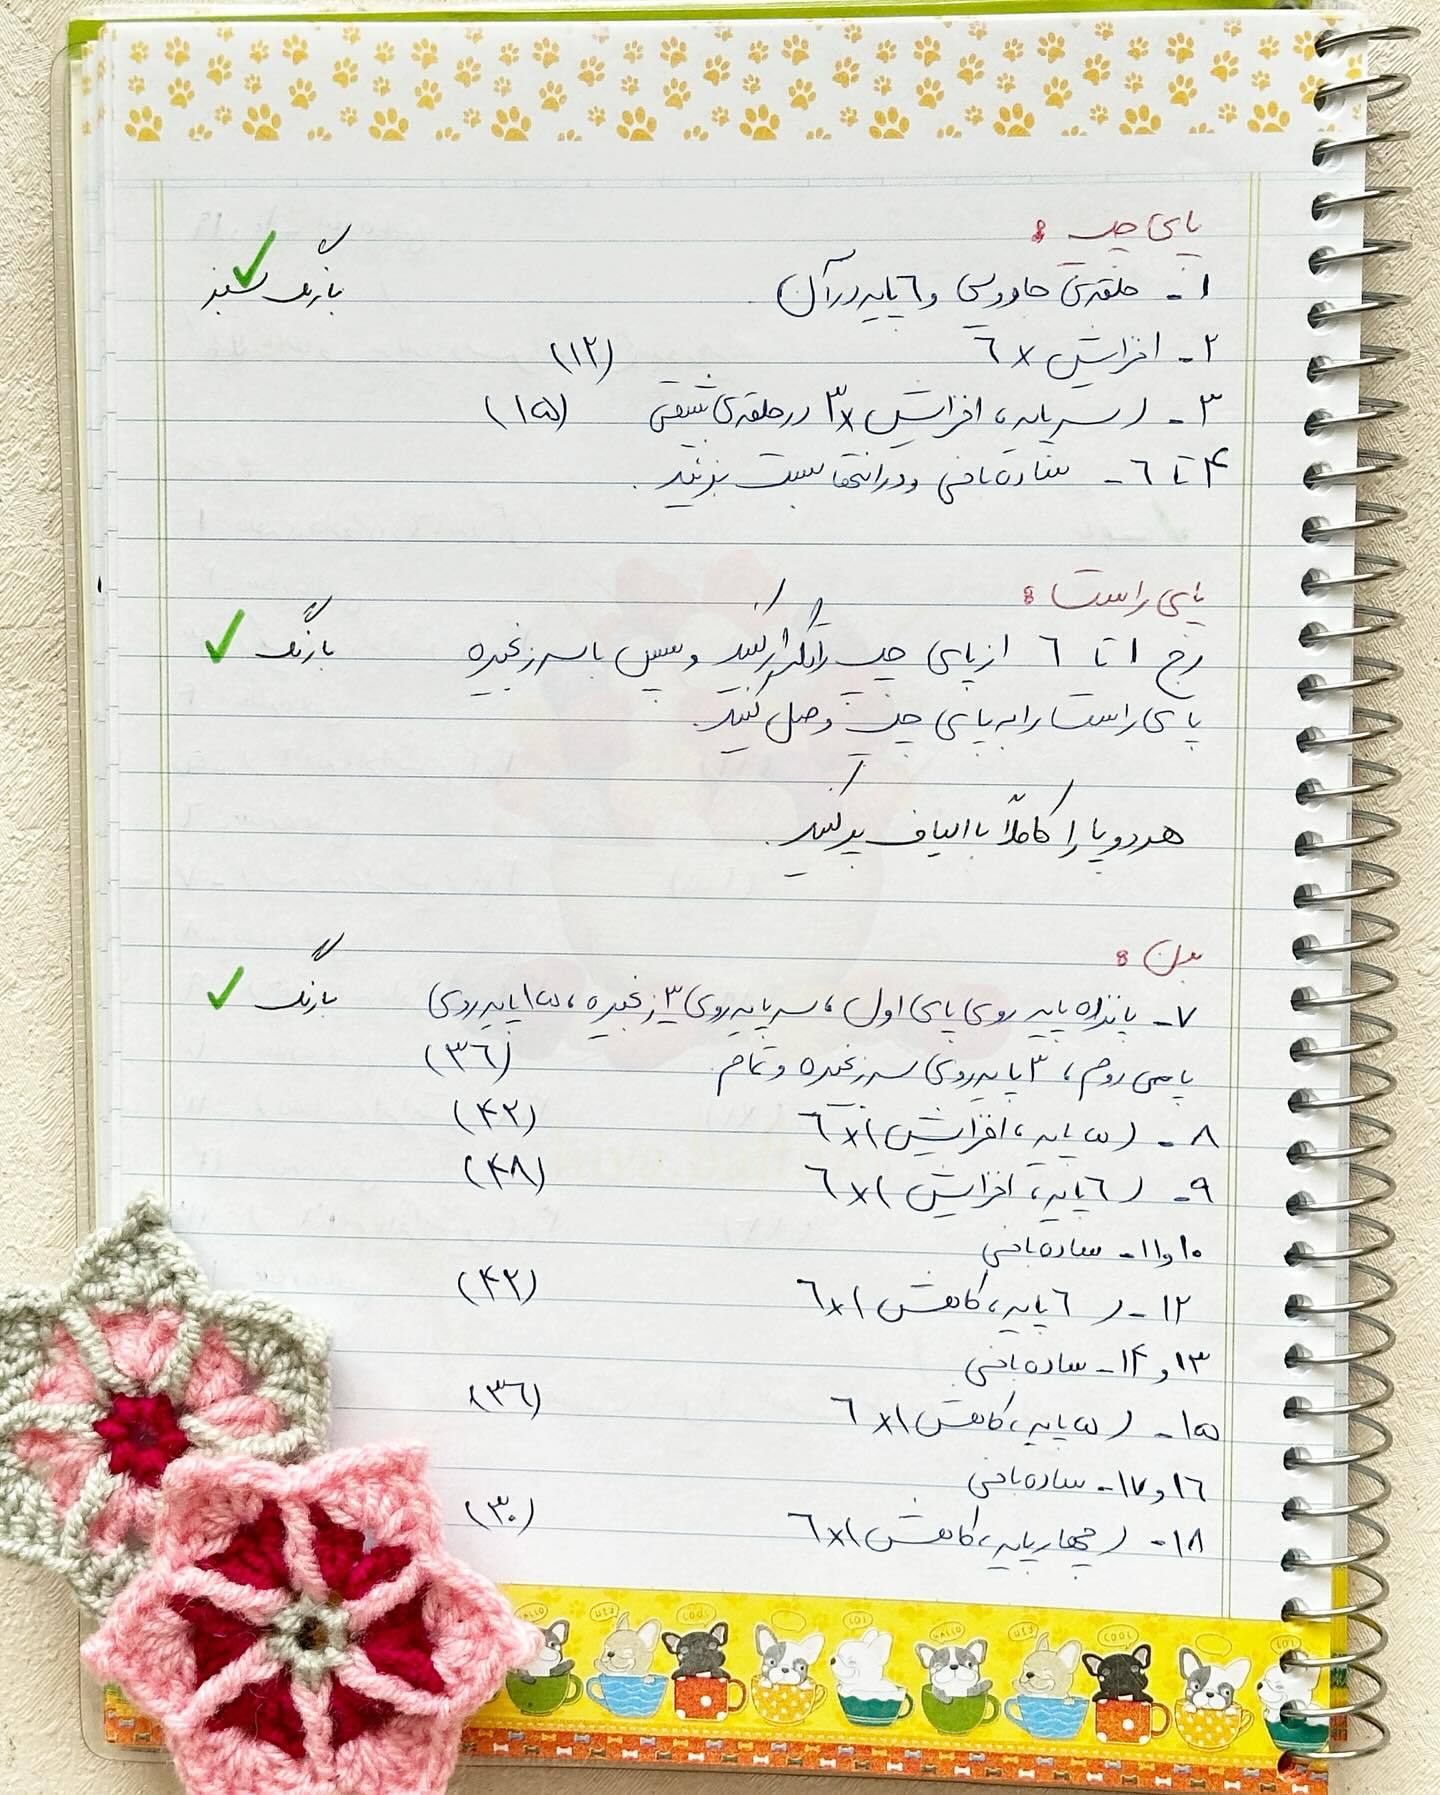 پای چپ :
۱- حلقه‌ی جادویی و ٦ پایه در آن با رنگ سبز
۲- افزایش x ٦ (۱۲)
۳- (سه پایه، افزایش x۳ در حلقه‌ی شیقی (۱۵)
۴ تا ٦- ساده بافی و در انتها بست بزنید.
پای راست :
رج ۱ تا ٦ از پای چپ را تکرار کنید و سپس با سه زنجیره با رنگ
پای راست را به پای چپ وصل کنید.
هر دو پا را کاملاً با الیاف پر کنید.
بدن :
۷- پانزده پایه روی پای اول، سه پایه روی ۳ زنجیره، ۱۵ پایه روی با رنگ
پای دوم، ۳ پایه روی سه زنجیره و تمام. (۳٦)
۸- (۵ پایه، افزایش)x٦ (۴۲)
۹- (٦ پایه، افزایش)x٦ (۴۸)
۱۰ و ۱۱- ساده بافی
۱۲- (٦ پایه، کاهش)x٦ (۴۲)
۱۳ و ۱۴- ساده بافی
۱۵- (۵ پایه، کاهش)x٦ (۳٦)
۱٦ و ۱۷- ساده بافی
۱۸- (چهار پایه، کاهش)x٦ (۳۰)
HALLO
HEY
COOL
LOL
HALLO
HEY
COOL
LOL